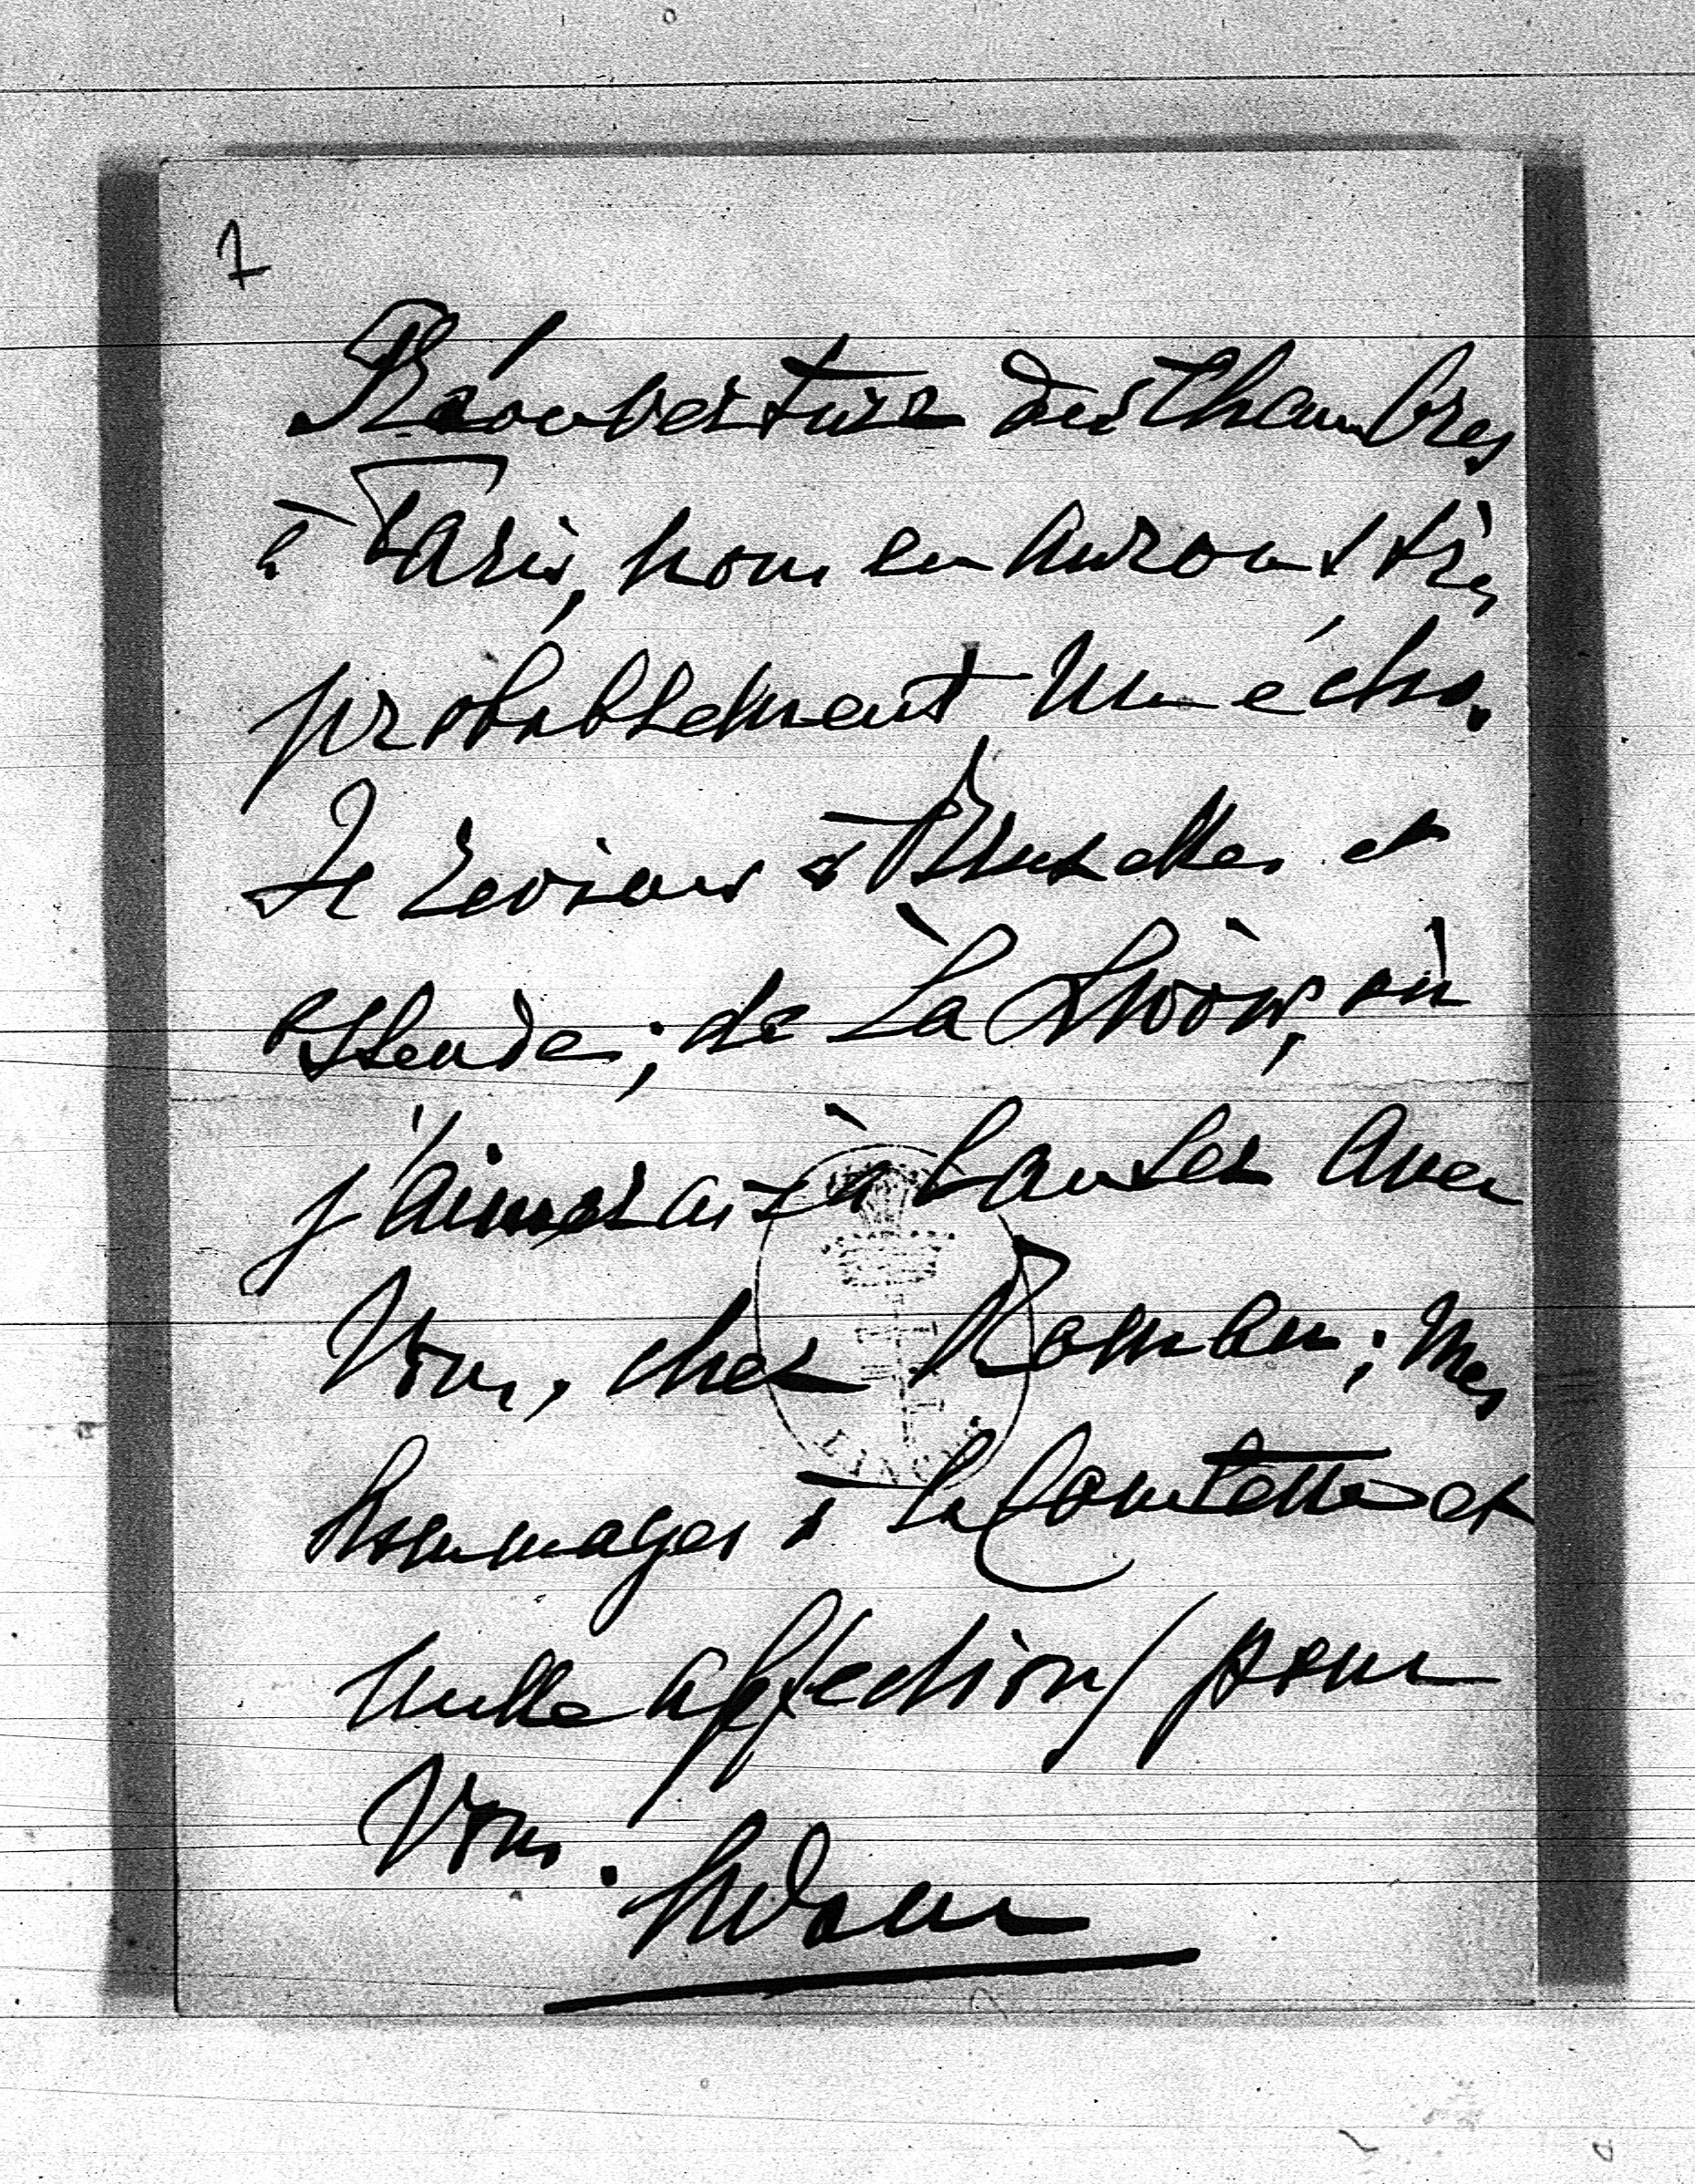 7
Réouverture des Chambres
à Paris, nous en aurons très
probablement un écho.
Je reviens à Bruxelles et
Ostende; de là à Lwow, où
j'aimerais à causer avec
Vous, chez Roman; mes
hommages à la Comtesse et
mille affection pour
Vous.